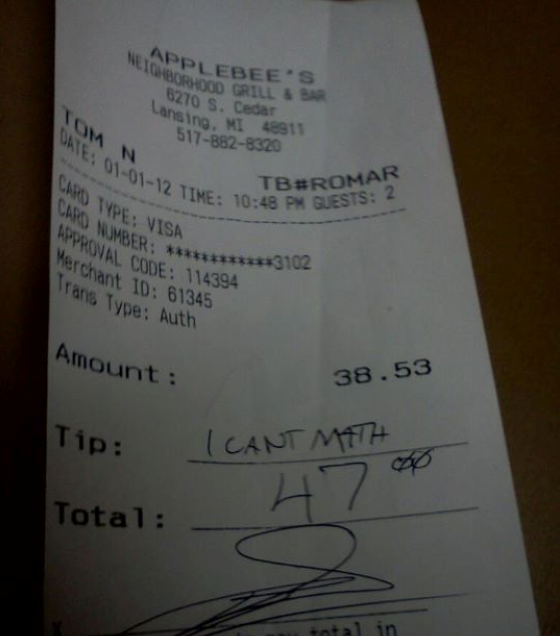 APPLEBEE'S
NEIGHBORHOOD GRILL & BAR
6270 S. Cedar
Lansing, MI 48911
517-882-8320
TOM N TB#ROMAR
DATE: 01-01-12 TIME: 10:48 PM GUESTS: 2
CARD TYPE: VISA
CARD NUMBER: ************3102
APPROVAL CODE: 114394
Merchant ID: 61345
Trans Type: Auth
Amount: 38.53
Tip: I CANT MATH
Total: 47 00
X
pay total in